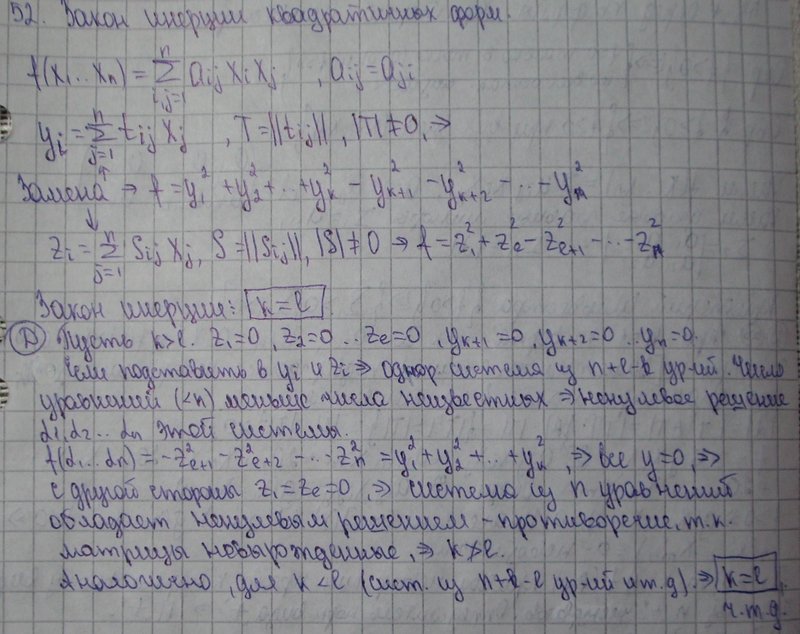 52. Закон инерции квадратичных форм.
f(x₁...xₙ) = Σⁿᵢ,ⱼ₌₁ aᵢⱼ xᵢ xⱼ , aᵢⱼ = aⱼᵢ
yᵢ = Σⁿⱼ₌₁ tᵢⱼ xⱼ , T = ||tᵢⱼ||, |T| ≠ 0, ⇒
Замена → f = y₁² + y₂² + ... + yₖ² − yₖ₊₁² − yₖ₊₂² − ... − yₙ²
zᵢ = Σⁿⱼ₌₁ sᵢⱼ xⱼ, S = ||sᵢⱼ||, |S| ≠ 0 ⇒ f = z₁² + z_l² − z_l₊₁² − ... − zₙ²
Закон инерции: k = l
Д Пусть k > l. z₁=0, z₂=0 ... z_l=0, yₖ₊₁=0, yₖ₊₂=0 ... yₙ=0.
Если подставить в yᵢ и zᵢ ⇒ однор. система из n+l−k ур-ий. Число
уравнений (<n) меньше числа неизвестных ⇒ ненулевое решение
α₁, α₂ ... αₙ этой системы.
f(α₁...αₙ) = −z_l₊₁² − z_l₊₂² − ... − zₙ² = y₁² + y₂² + ... + yₖ², ⇒ все y=0, ⇒
с другой стороны z₁ = z_l = 0, ⇒ система из n уравнений
обладает ненулевым решением – противоречие, т.к.
матрицы невырожденные, ⇒ k ≯ l.
Аналогично, для k < l (сист. из n+k−l ур-ий и т.д) ⇒ k = l
ч.т.д.